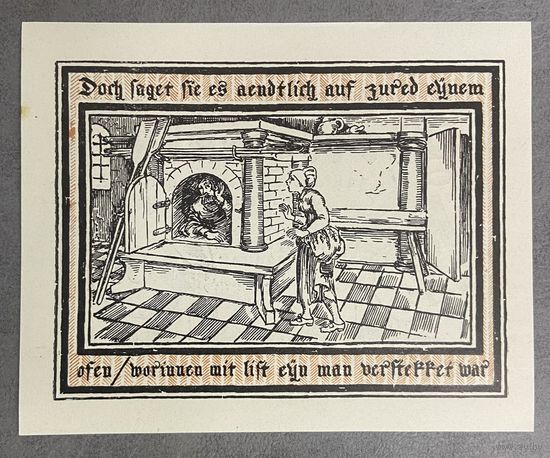 Doch saget sie es aendtlich auf zured eynem
ofen/worinnen mit list eyn man verstekket war